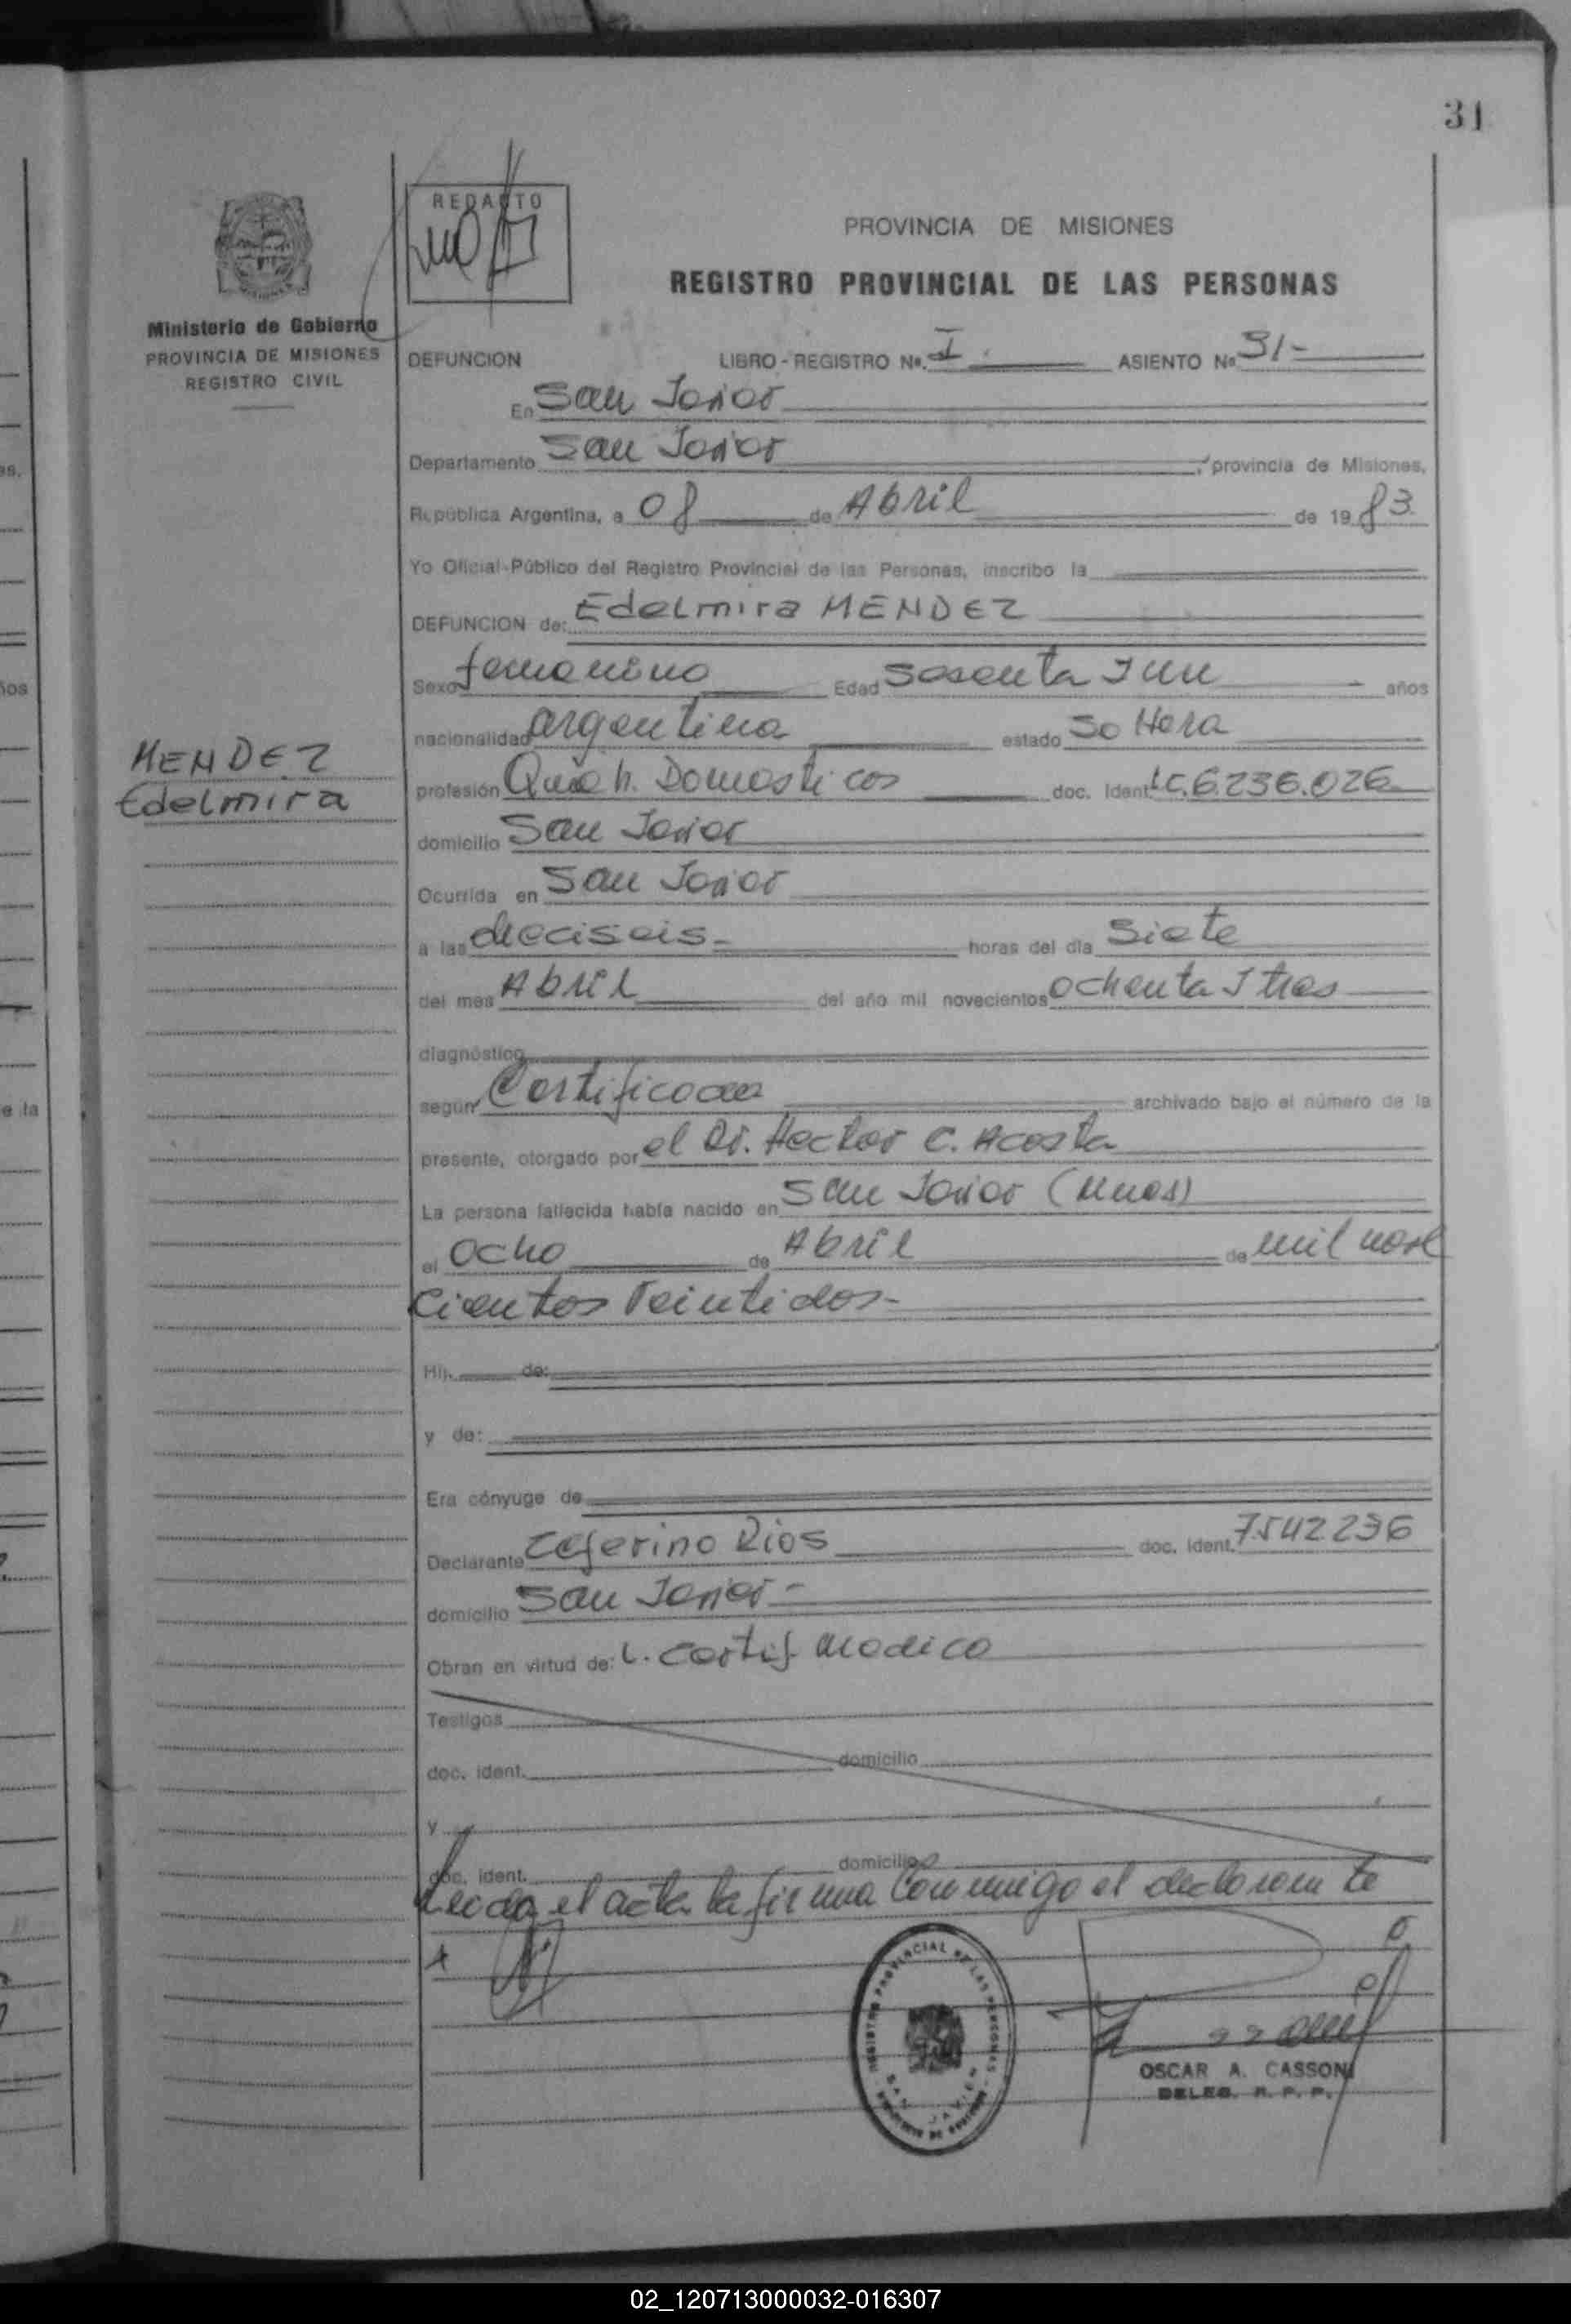 31
REDACTO
PROVINCIA DE MISIONES
REGISTRO PROVINCIAL DE LAS PERSONAS
Ministerio de Gobierno
PROVINCIA DE MISIONES
REGISTRO CIVIL
DEFUNCION LIBRO - REGISTRO No. I. ASIENTO No 31-
En San Javier
Departamento San Javier, provincia de Misiones,
República Argentina, a 08 de Abril de 1983
Yo Oficial Público del Registro Provincial de las Personas, inscribo la
DEFUNCION de: Edelmira MENDEZ
Sexo femenino Edad Sesenta y un años
nacionalidad argentina estado Soltera
MENDEZ
Edelmira
profesión Queh. Domesticos doc. Ident. LC.6.236.026
domicilio San Javier
Ocurrida en San Javier
a las dieciseis- horas del día Siete
del mes Abril del año mil novecientos ochenta y tres
diagnóstico
según Certificado archivado bajo el número de la
presente, otorgado por el Dr. Hector C. Acosta
La persona fallecida había nacido en San Javier (Mnes)
el Ocho de Abril de mil nove
cientos Veintidos-
Hij de:
y de:
Era cónyuge de
Declarante Ceferino Rios doc. Ident. 7542236
domicilio San Javier-
Obran en virtud de: L. Certif medico
Testigos
doc. ident. domicilio
y
doc. ident. domicilio
Leida el acta la firma Conmigo el declarante
x
REGISTRO PROVINCIAL DE LAS PERSONAS
SAN JAVIER
OSCAR A. CASSONI
DELEG. R. P. P.
02_120713000032-016307